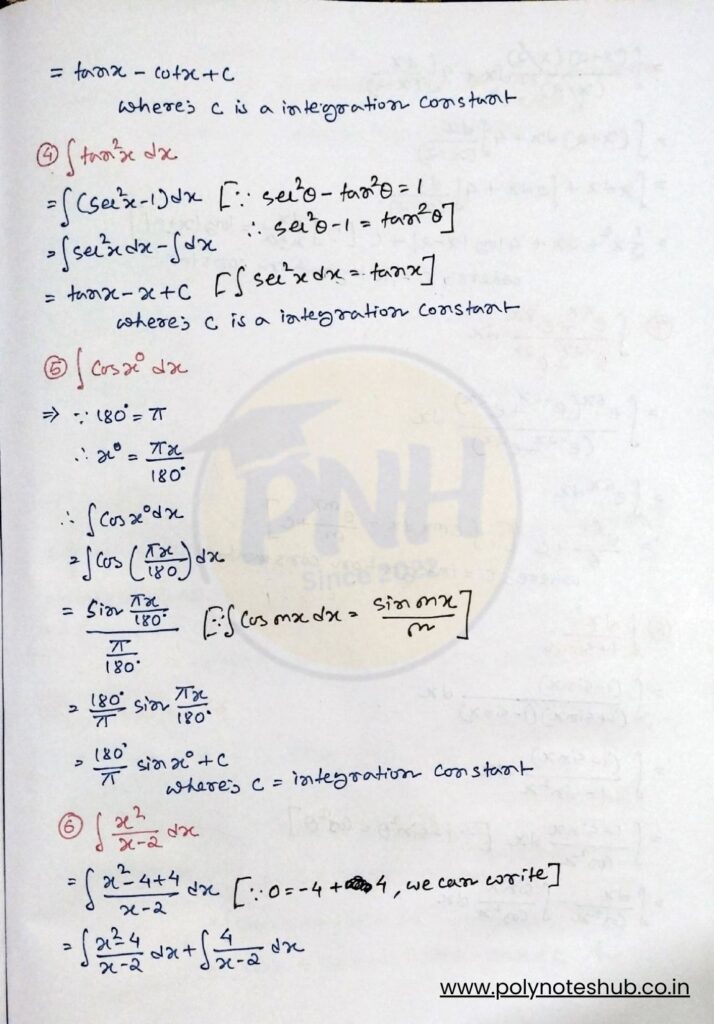 = tanx - cotx + c
where; c is a integration constant
④ ∫ tan²x dx
= ∫(sec²x-1)dx [∵ sec²θ - tan²θ = 1
= ∫sec²x dx - ∫dx ∴ sec²θ-1 = tan²θ]
= tanx - x + c [∫ sec²x dx = tanx]
where; c is a integration constant
⑤ ∫ cosx° dx
⇒ ∵ 180° = π
∴ x° = πx/180°
∴ ∫ cosx° dx
= ∫cos (πx/180) dx
= (sin πx/180°)/(π/180°) [∵∫ cosmx dx = sin mx/m]
= 180°/π sin πx/180°
= 180°/π sinx° + c
where; c = integration constant
⑥ ∫ x²/(x-2) dx
= ∫ (x²-4+4)/(x-2) dx [∵ 0 = -4 + 4, we can write]
= ∫ (x²-4)/(x-2) dx + ∫ 4/(x-2) dx
PNH
Since 2022
www.polynoteshub.co.in